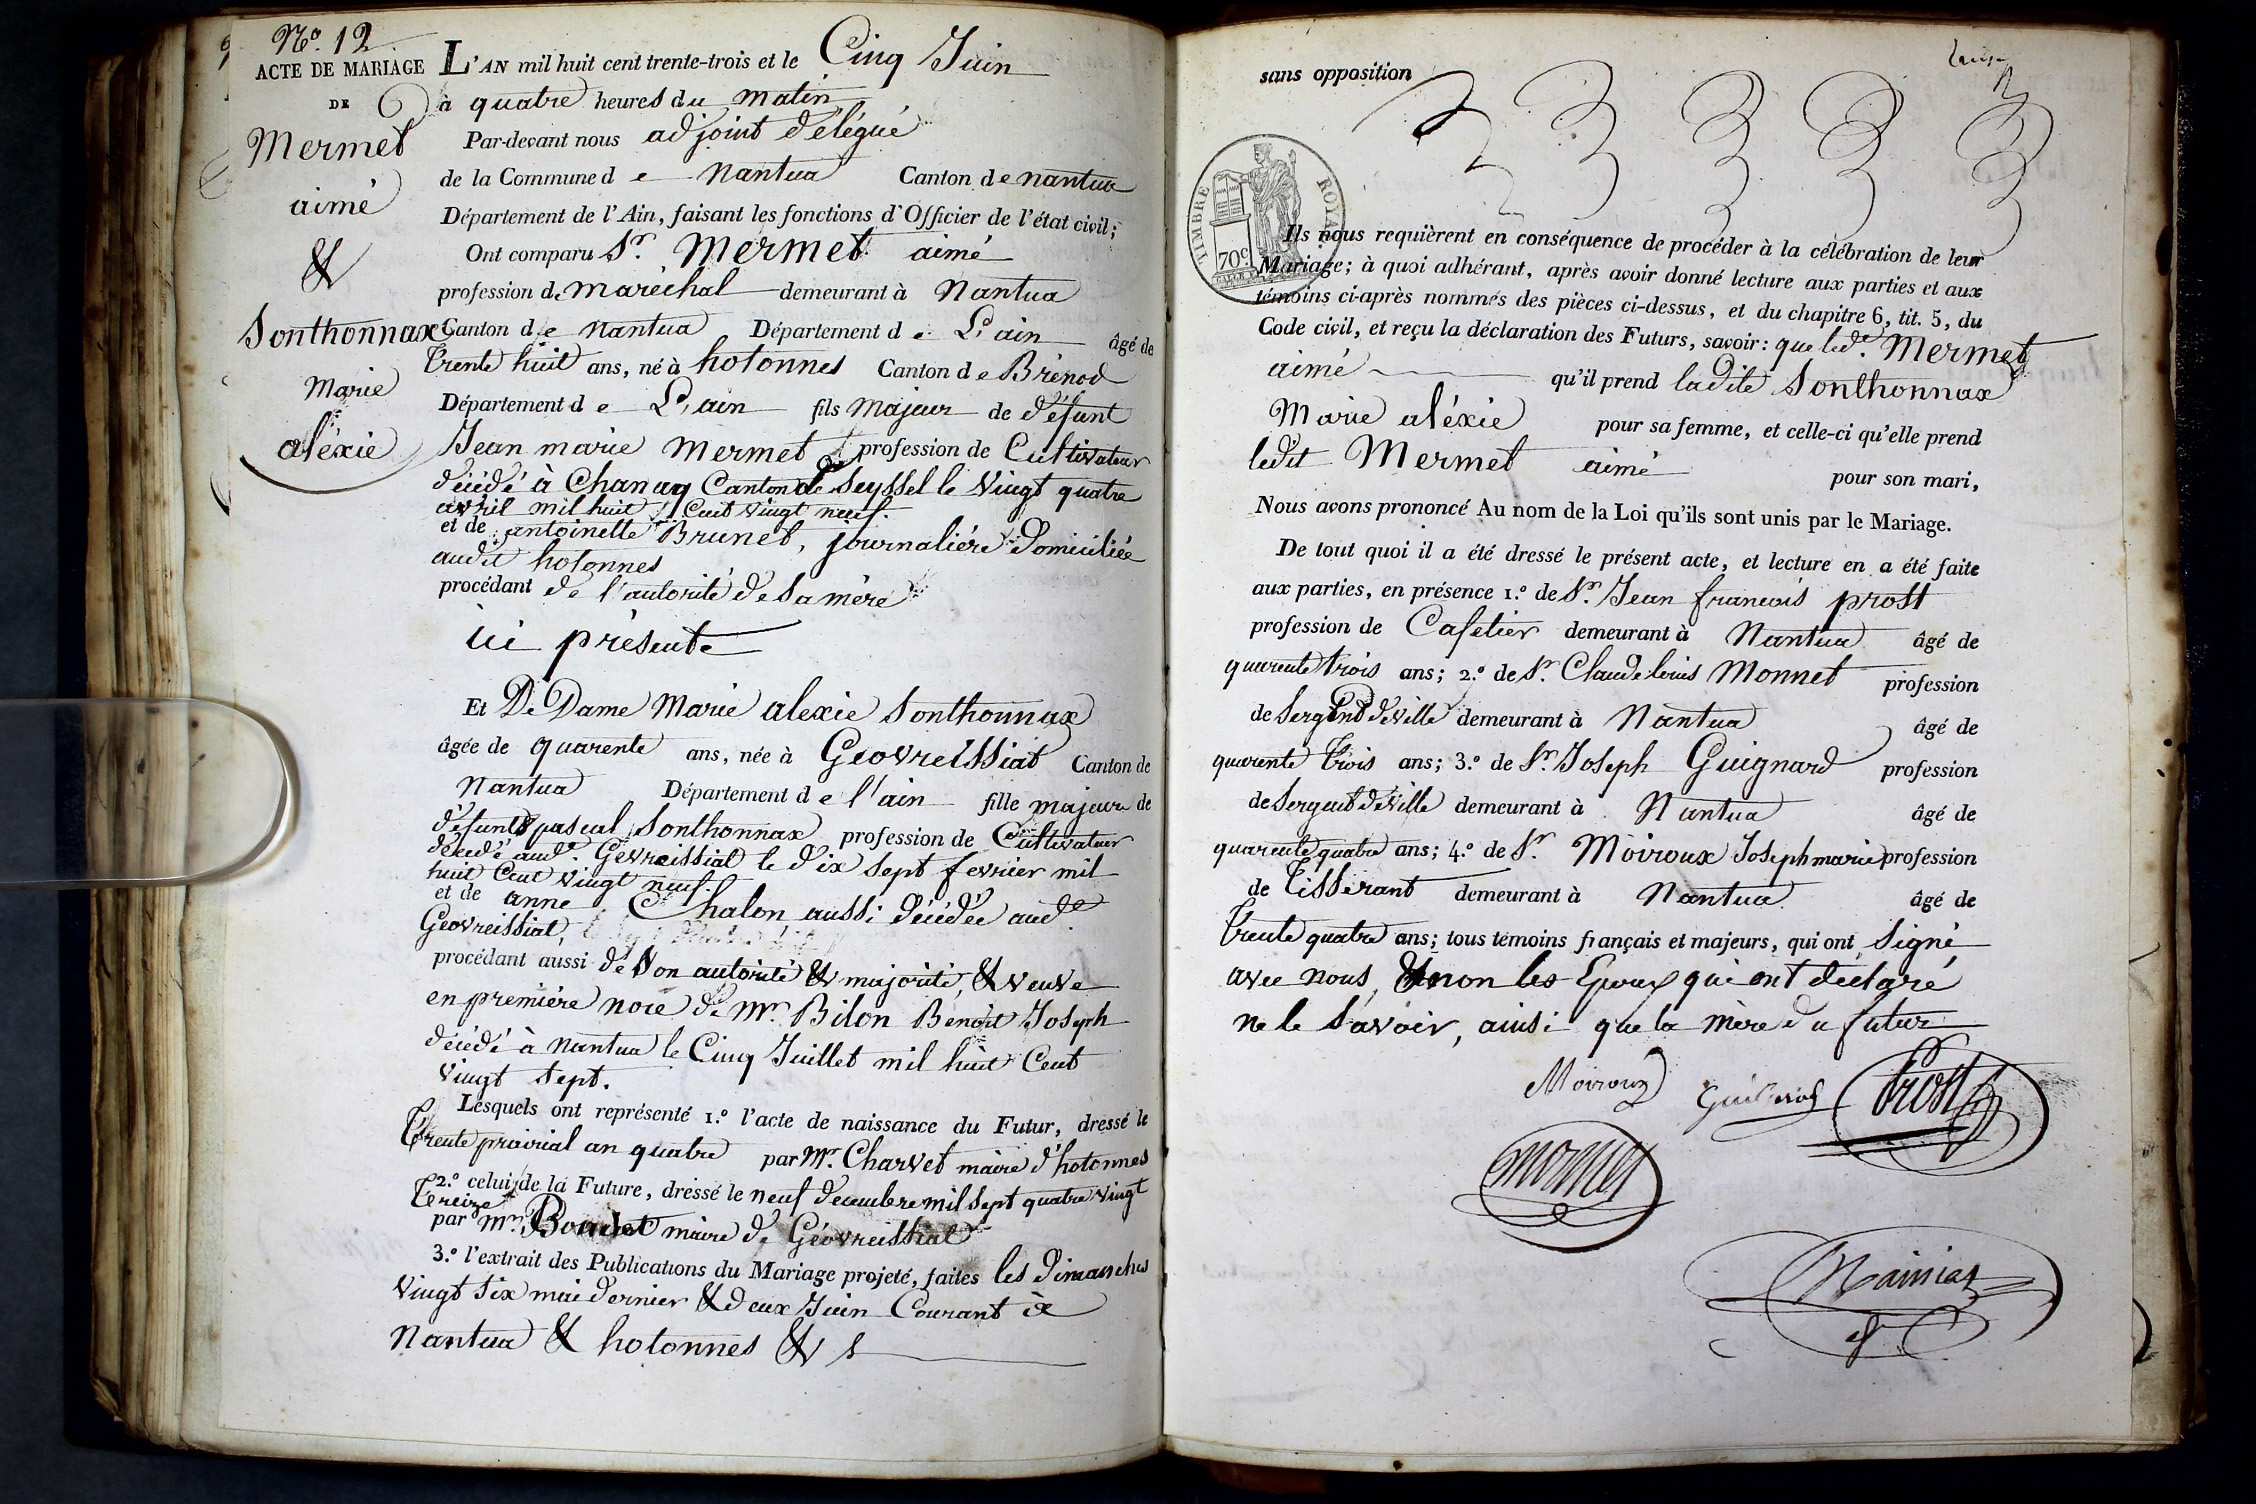 No. 12
ACTE DE MARIAGE
DE
Mermet
aimé
&
Sonthonnax
Marie
aléxie
L'AN mil huit cent trente-trois et le Cinq Juin
à quatre heures du matin
Par-devant nous adjoint délégué
de la Commune de Nantua Canton de nantua
Département de l'Ain, faisant les fonctions d'Officier de l'état civil;
Ont comparu Sr. Mermet aimé
profession de maréchal demeurant à Nantua
Canton de Nantua Département de L'ain âgé de
trente huit ans, né à hotonnes Canton de Brénod
Département de L'ain fils majeur de défunt
Jean marie Mermet profession de Cultivateur
décédé à Chanay Canton de Seyssel le Vingt quatre
avril mil huit Cent vingt neuf.
et de antoinette Brunet, journalière domiciliée
audit hotonnes
procédant de l'autorité de Sa mère
ici présente
Et De Dame Marie alexie Sonthonnax
âgée de quarente ans, née à Géovreissiat Canton de
Nantua Département de l'ain fille majeure de
défunt pascal Sonthonnax profession de Cultivateur
décédé aud. Gévreissiat le dix sept fevrier mil
huit Cent vingt neuf.
et de anne Chalon aussi décédée aud.
Géovreissiat,
procédant aussi de Son autorité & majorité, & veuve
en première noce de Mr. Bilon Benoit Joseph
décédé à Nantua le Cinq Juillet mil huit Cent
vingt sept.
Lesquels ont représenté 1.º l'acte de naissance du Futur, dressé le
trente prairial an quatre par Mr. Charvet maire d'hotonnes
2.º celui de la Future, dressé le neuf decembre mil sept quatre vingt
treize
par Mr. Bondet maire de Géovreissiat
3.º l'extrait des Publications du Mariage projeté, faites les dimanches
vingt six mai dernier & deux Juin Courant à
Nantua & hotonnes &
sans opposition
TIMBRE ROYAL
70c.
Ils nous requièrent en conséquence de procéder à la célébration de leur
Mariage; à quoi adhérant, après avoir donné lecture aux parties et aux
témoins ci-après nommés des pièces ci-dessus, et du chapitre 6, tit. 5, du
Code civil, et reçu la déclaration des Futurs, savoir: que led. Mermet
aimé qu'il prend ladite Sonthonnax
Marie aléxie pour sa femme, et celle-ci qu'elle prend
ledit Mermet aimé pour son mari,
Nous avons prononcé Au nom de la Loi qu'ils sont unis par le Mariage.
De tout quoi il a été dressé le présent acte, et lecture en a été faite
aux parties, en présence 1.º de Sr. Jean francois prost
profession de Cafetier demeurant à Nantua âgé de
quarente trois ans; 2.º de Sr. Claude louis Monnet profession
de Sergent de ville demeurant à Nantua âgé de
quarente trois ans; 3.º de Sr. Joseph Guignard profession
de Sergent de ville demeurant à Nantua âgé de
quarente quatre ans; 4.º de Sr. Moiroux Joseph marie profession
de tisserant demeurant à Nantua âgé de
trente quatre ans; tous témoins français et majeurs, qui ont Signé
avec nous, & non les Epoux qui ont déclaré
ne le Savoir, ainsi que la mère du futur
Moiroux
Guignard
Prost
monnet